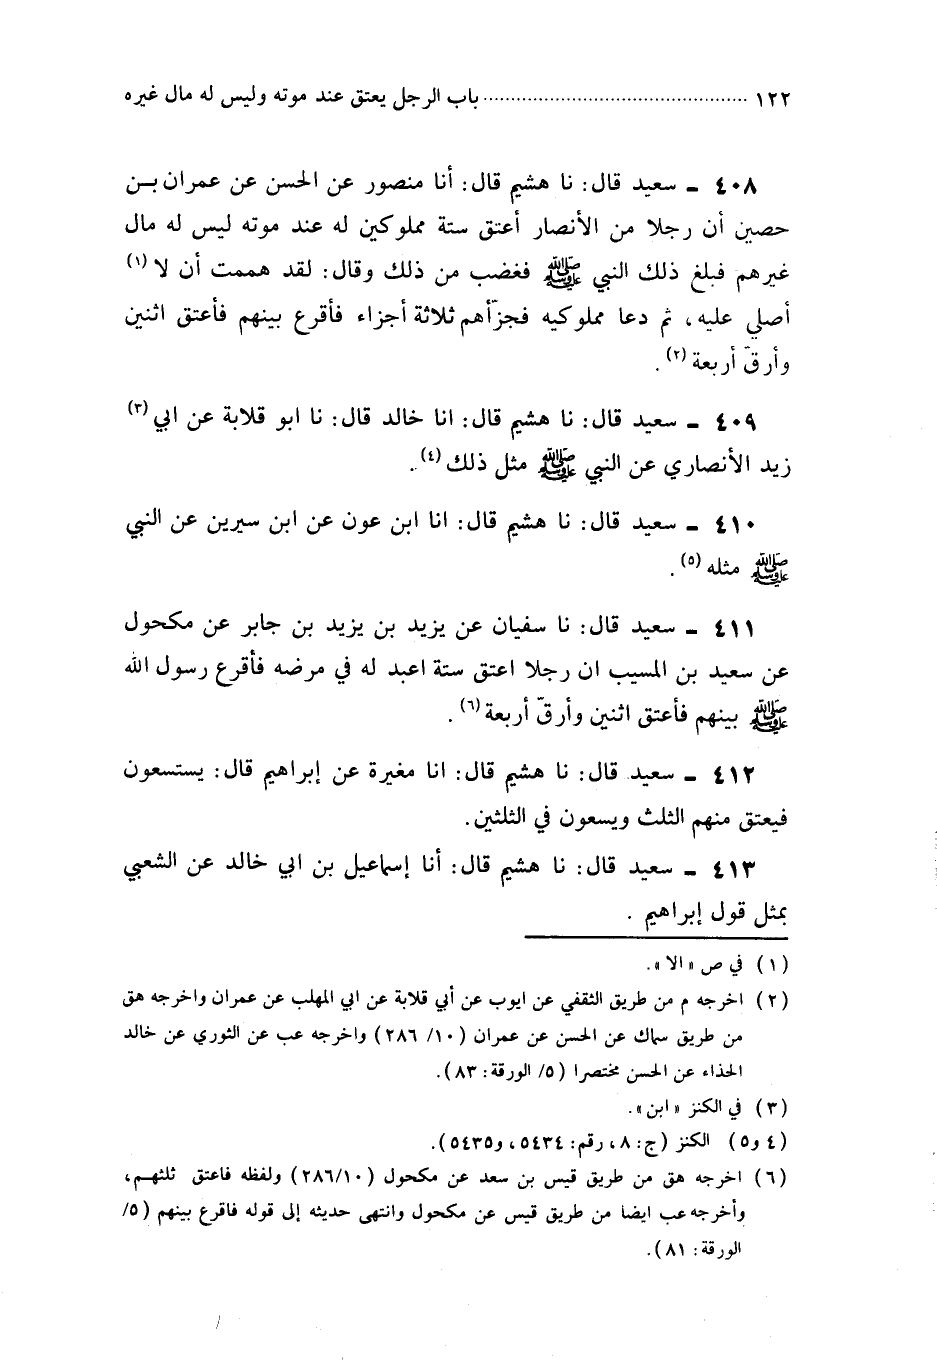 ١٢٢ ........ باب الرجل يعتق عند موته وليس له مال غيره
٤٠٨ ـ سعيد قال: نا هشيم قال: أنا منصور عن الحسن عن عمران بـن
حصين أن رجلا من الأنصار أعتق ستة مملوكين له عند موته ليس له مال
غيرهم فبلغ ذلك النبي ﷺ فغضب من ذلك وقال: لقد هممت أن لا (١)
أصلي عليه، ثم دعا مملوكيه فجزّأهم ثلاثة أجزاء فأقرع بينهم فأعتق اثنين
وأرقّ أربعة (٢).
٤٠٩ ـ سعيد قال: نا هشيم قال: انا خالد قال: نا ابو قلابة عن ابي (٣)
زيد الأنصاري عن النبي ﷺ مثل ذلك (٤).
٤١٠ ـ سعيد قال: نا هشيم قال: انا ابن عون عن ابن سيرين عن النبي
ﷺ مثله (٥).
٤١١ ـ سعيد قال: نا سفيان عن يزيد بن يزيد بن جابر عن مكحول
عن سعيد بن المسيب ان رجلا اعتق ستة اعبد له في مرضه فأقرع رسول الله
ﷺ بينهم فأعتق اثنين وأرقّ أربعة (٦).
٤١٢ ـ سعيد قال: نا هشيم قال: انا مغيرة عن إبراهيم قال: يستسعون
فيعتق منهم الثلث ويسعون في الثلثين.
٤١٣ ـ سعيد قال: نا هشيم قال: أنا إسماعيل بن ابي خالد عن الشعبي
بمثل قول إبراهيم .
(١) في ص «الا».
(٢) اخرجه م من طريق الثقفي عن ايوب عن أبي قلابة عن ابي المهلب عن عمران واخرجه هق
من طريق سماك عن الحسن عن عمران (١٠/ ٢٨٦) واخرجه عب عن الثوري عن خالد
الحذاء عن الحسن مختصرا (٥/ الورقة: ٨٣).
(٣) في الكنز «ابن».
(٤ و٥) الكنز (ج: ٨، رقم: ٥٤٣٤، و٥٤٣٥).
(٦) اخرجه هق من طريق قيس بن سعد عن مكحول (٢٨٦/١٠) ولفظه فاعتق ثلثهـم،
وأخرجه عب ايضا من طريق قيس عن مكحول وانتهى حديثه إلى قوله فاقرع بينهم (٥/
الورقة: ٨١).